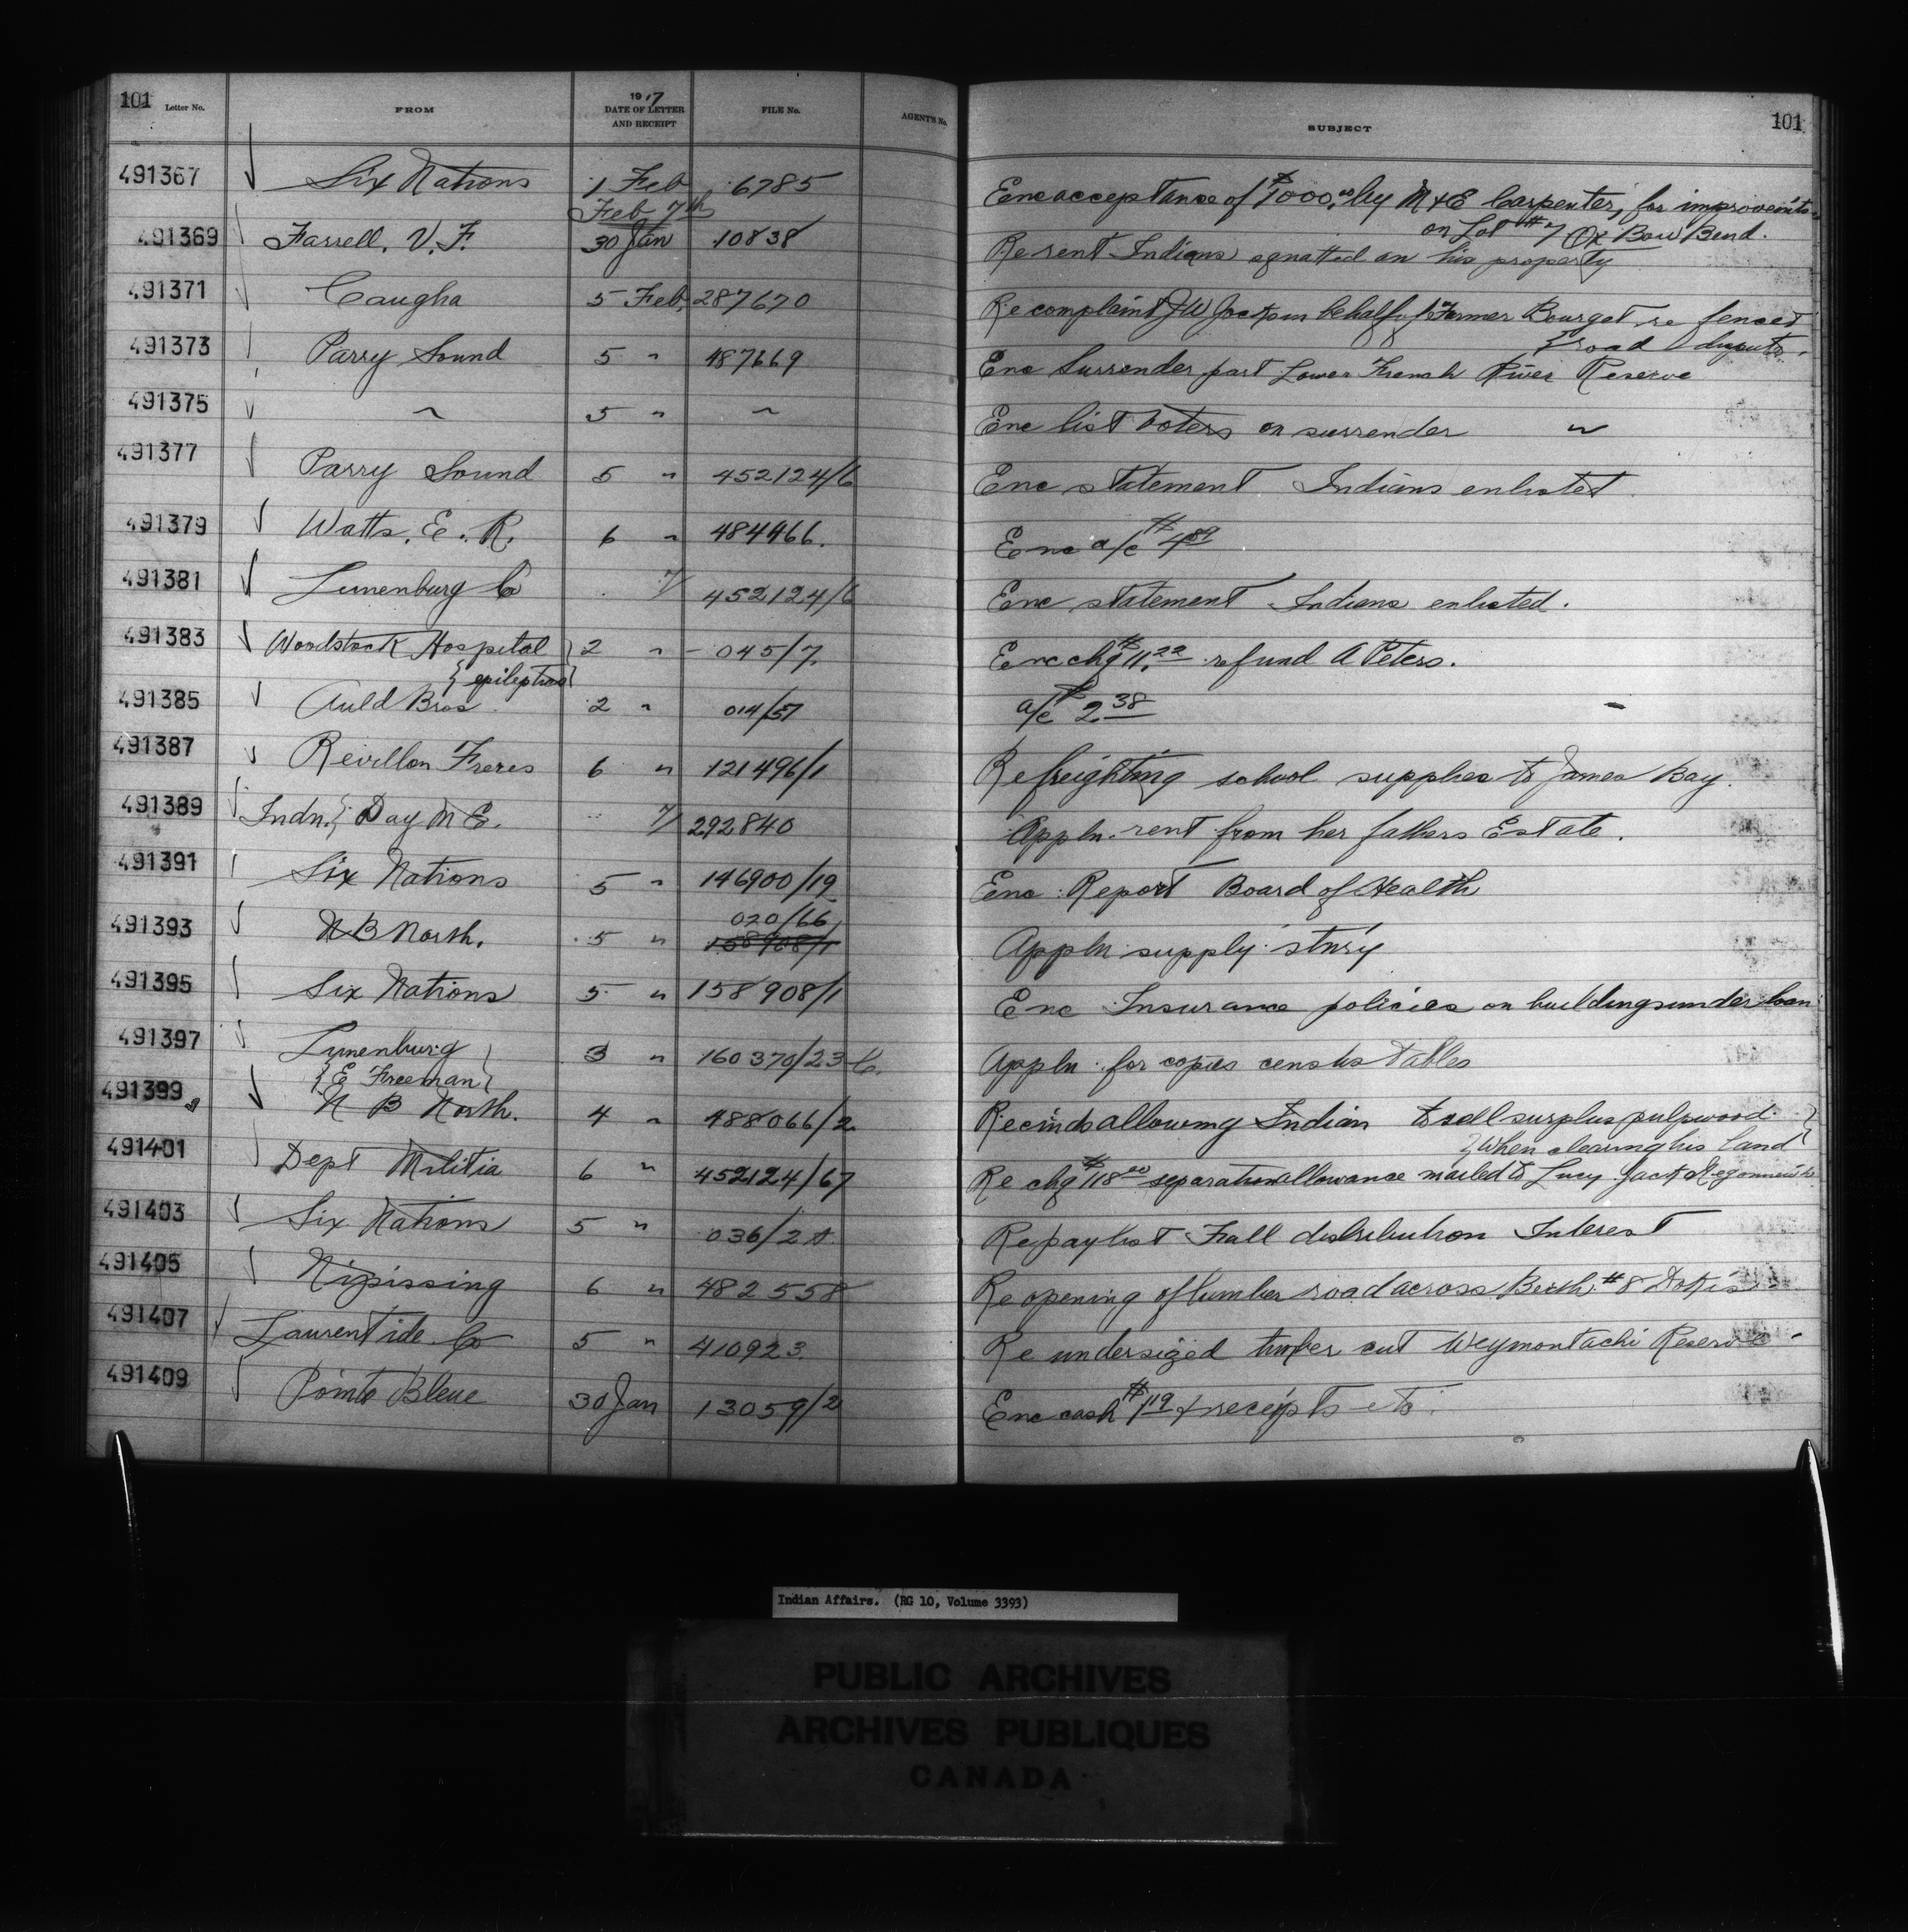 101 Letter No. FROM 1917 DATE OF LETTER AND RECEIPT FILE No. AGENT'S No. SUBJECT 101
491367 Six Nations 1 Feb 6785 Enc acceptance of $1000.00 by M & E Carpenter, for improvents
Feb 7th on Lot #7 Ox Bow Bend.
491369 Farrell, V. F. 30 Jan 10838 Re rent Indians squatted on his property
491371 Caugha 5 Feb 287670 Re complaint J W Jock on behalf of Farmer Bourget re fences
{road dispute.
491373 Parry Sound 5 " 487669 Enc Surrender part Lower French River Reserve
491375 " 5 " " Enc list voters on surrender "
491377 Parry Sound 5 " 452124/6 Enc statement Indians enlisted
491379 Watts, E. R. 6 " 484466. Enc a/c $4.89
491381 Lunenburg Co 7/ 452124/6 Enc statement Indians enlisted.
491383 Woodstock Hospital 2 " 045/7. Enc chq $11.22 refund A Peters.
{epileptics}
491385 Auld Bros 2 " 014/57 a/c $2.38
491387 Revillon Freres 6 " 121496/1 Re freighting school supplies to James Bay.
491389 Indn. } Day M E. 7/ 292840 Appln. rent from her fathers Estate.
491391 Six Nations 5 " 146900/19 Enc Report Board of Health
491393 N B North. 5 " 020/66 Appln supply stnry
158908/1
491395 Six Nations 5 " 158908/1 Enc Insurance policies on buildings under loan
491397 Lunenburg 3 " 160370/23 C. Appln for copies census tables
{E Freeman}
491399 N B North. 4 " 488066/2 Re inds allowing Indian to sell surplus pulpwood
{when clearing his land}
491401 Dept Militia 6 " 452124/67 Re chq $118.00 separation allowance mailed to Lucy Jack
491403 Six Nations 5 " 036/2 A. Re paylist Fall distribution Interest
491405 Nipissing 6 " 482558 Re opening of lumber road across Berth #8 Dokis
491407 Laurentide Co 5 " 410923. Re undersized timber cut Weymontachi Reserve
491409 Pointe Bleue 30 Jan 13059/2 Enc cash $1.19 & receipts etc.
Indian Affairs. (RG 10, Volume 3393)
PUBLIC ARCHIVES
ARCHIVES PUBLIQUES
CANADA